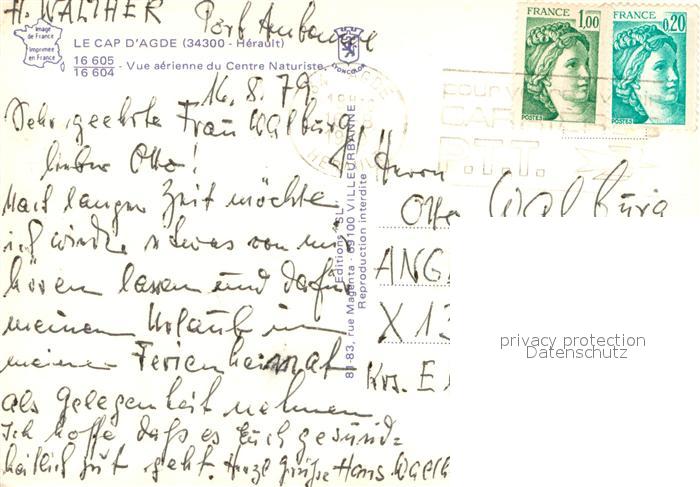 H. WALTHER Port Ambonne
Image de France
Imprimée en France
LE CAP D'AGDE (34300 - Hérault)
16 605
16 604 - Vue aérienne du Centre Naturiste.
LYONCOLOR
FRANCE 1,00
POSTES
FRANCE 0,20
POSTES
AGDE
pour v
CAR
P.T.T.
16. 8. 79
Sehr geehrte Frau Walburg,
lieber Otto!
Nach langer Zeit möchte
ich wieder etwas von mir
hören lassen und dafür
meinen Urlaub in
meiner Ferienheimat
als Gelegenheit nehmen
Ich hoffe daß es Euch gesund=
heitlich gut geht. Herzl. Grüße Hans Walth
Editions "SL"
81-83, rue Magenta - 69100 VILLEURBANNE
Reproduction interdite
Herrn
Otto Walburg
ANG
X 13
Krs. E
privacy protection
Datenschutz